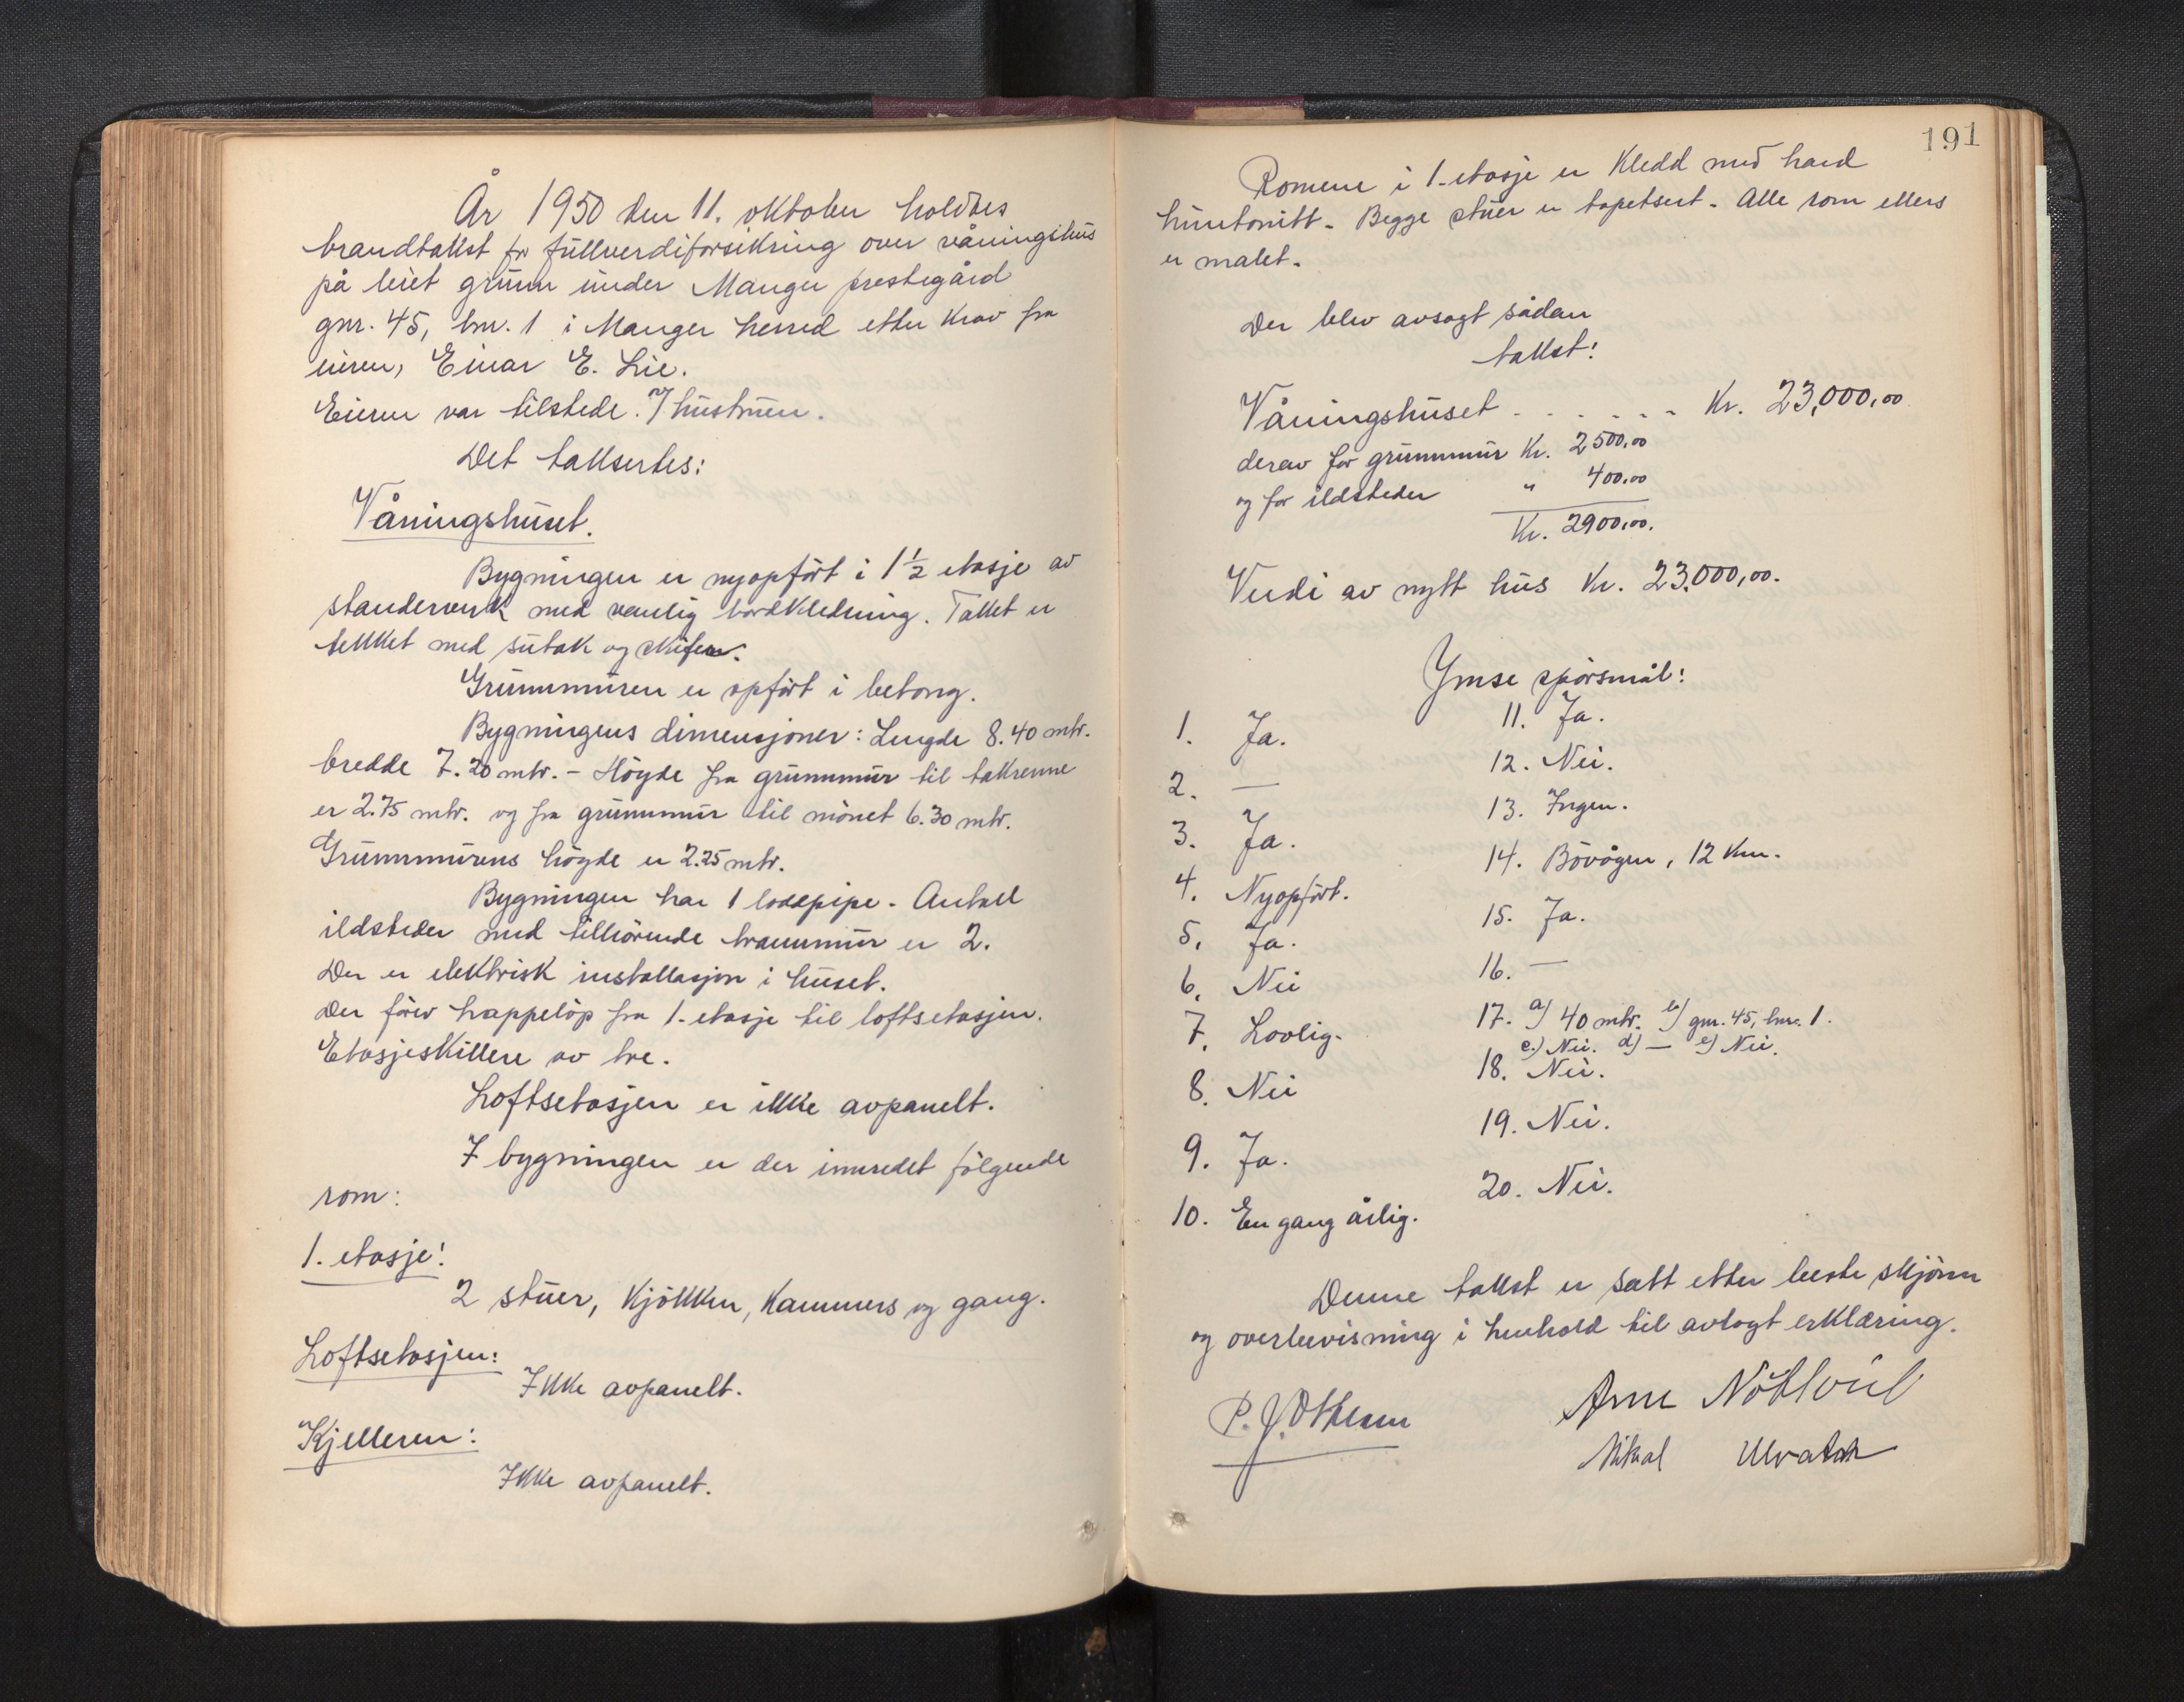 År 1950 den 11. oktober holdtes
brandtakst for fullverdiforsikring over våningshus
på leiet grunn under Manger prestegård
gnr. 45, bnr. 1 i Manger herred etter krav fra
eieren, Einar E. Lie.
Eieren var tilstede. / hustruen.
Det taksertes:
Våningshuset.
Bygningen er nyopført i 1½ etasje av
standerverk med vanlig bordkledning. Taket er
tekket med sutak og skifer.
Grunnmuren er opført i betong.
Bygningens dimensjoner: Lengde 8.40 mtr.
bredde 7.20 mtr. - Høyde fra grunnmur til takrenne
er 2.75 mtr. og fra grunnmur til mønet 6.30 mtr.
Grunnmurens høyde er 2.25 mtr.
Bygningen har 1 loddpipe. Antall
ildsteder med tilhørende brannmur er 2.
Der er elektrisk installasjon i huset.
Der fører trappeløp fra 1. etasje til loftsetasjen.
Etasjeskillere av tre.
Loftsetasjen er ikke avpanelt.
I bygningen er der innredet følgende
rom:
1. etasje:
2 stuer, kjøkken, kammers og gang.
Loftsetasjen:
Ikke avpanelt.
Kjelleren:
Ikke avpanelt.
191
Romene i 1. etasje er kledd med hard
huntonitt. Begge stuer er tapetsert. Alle rom ellers
er malet.
Der blev avsagt sådan
takst:
Våningshuset - - - - - - Kr. 23,000,00
derav for grunnmur Kr. 2500,00
og for ildsteder " 400,00
Kr. 2900,00.
Verdi av nytt hus Kr. 23,000,00.
Ymse spørsmål:
1. Ja.
2. —
3. Ja.
4. Nyopført.
5. Ja.
6. Nei
7. Lovlig.
8. Nei
9. Ja.
10. En gang årlig.
11. Ja.
12. Nei.
13. Ingen.
14. Bøvågen, 12 km.
15. Ja.
16. —
17. a) 40 mtr. b) gnr. 45, bnr. 1.
c.) Nei. d) — e) Nei.
18. Nei.
19. Nei.
20. Nei.
Denne takst er satt etter beste skjønn
og overbevisning i henhold til avlagt erklæring.
P. J. Askeland
Arne Nøttveit
Mikal Ulvatn